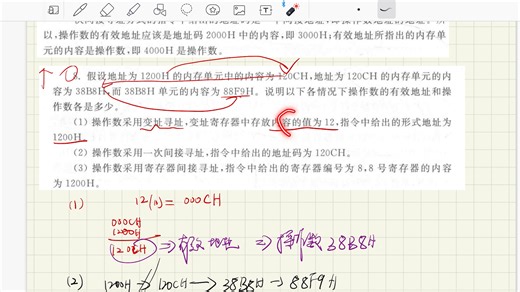 次间接寻址方式的指令中给出的地址码是一个间接地址,即操作数地址的地址。所
以,操作数的有效地址应该是地址码 2000H 中的内容,即 3000H;有效地址所指出的内存单
元的内容是操作数,即 4000H 是操作数。
8. 假设地址为 1200H 的内存单元中的内容为 120CH,地址为 120CH 的内存单元的内
容为 38B8H,而 38B8H 单元的内容为 88F9H。说明以下各情况下操作数的有效地址和操
作数各是多少。
(1) 操作数采用变址寻址,变址寄存器中存放内容的值为 12,指令中给出的形式地址为
1200H。
(2) 操作数采用一次间接寻址,指令中给出的地址码为 120CH。
(3) 操作数采用寄存器间接寻址,指令中给出的寄存器编号为 8,8 号寄存器的内容
为 1200H。
(1) 12(10) = 000CH
000CH
1200H
120CH ⇒ 有效地址 ⇒ 操作数 38B8H
(2) 1200H → 120CH → 38B8H → 88F9H